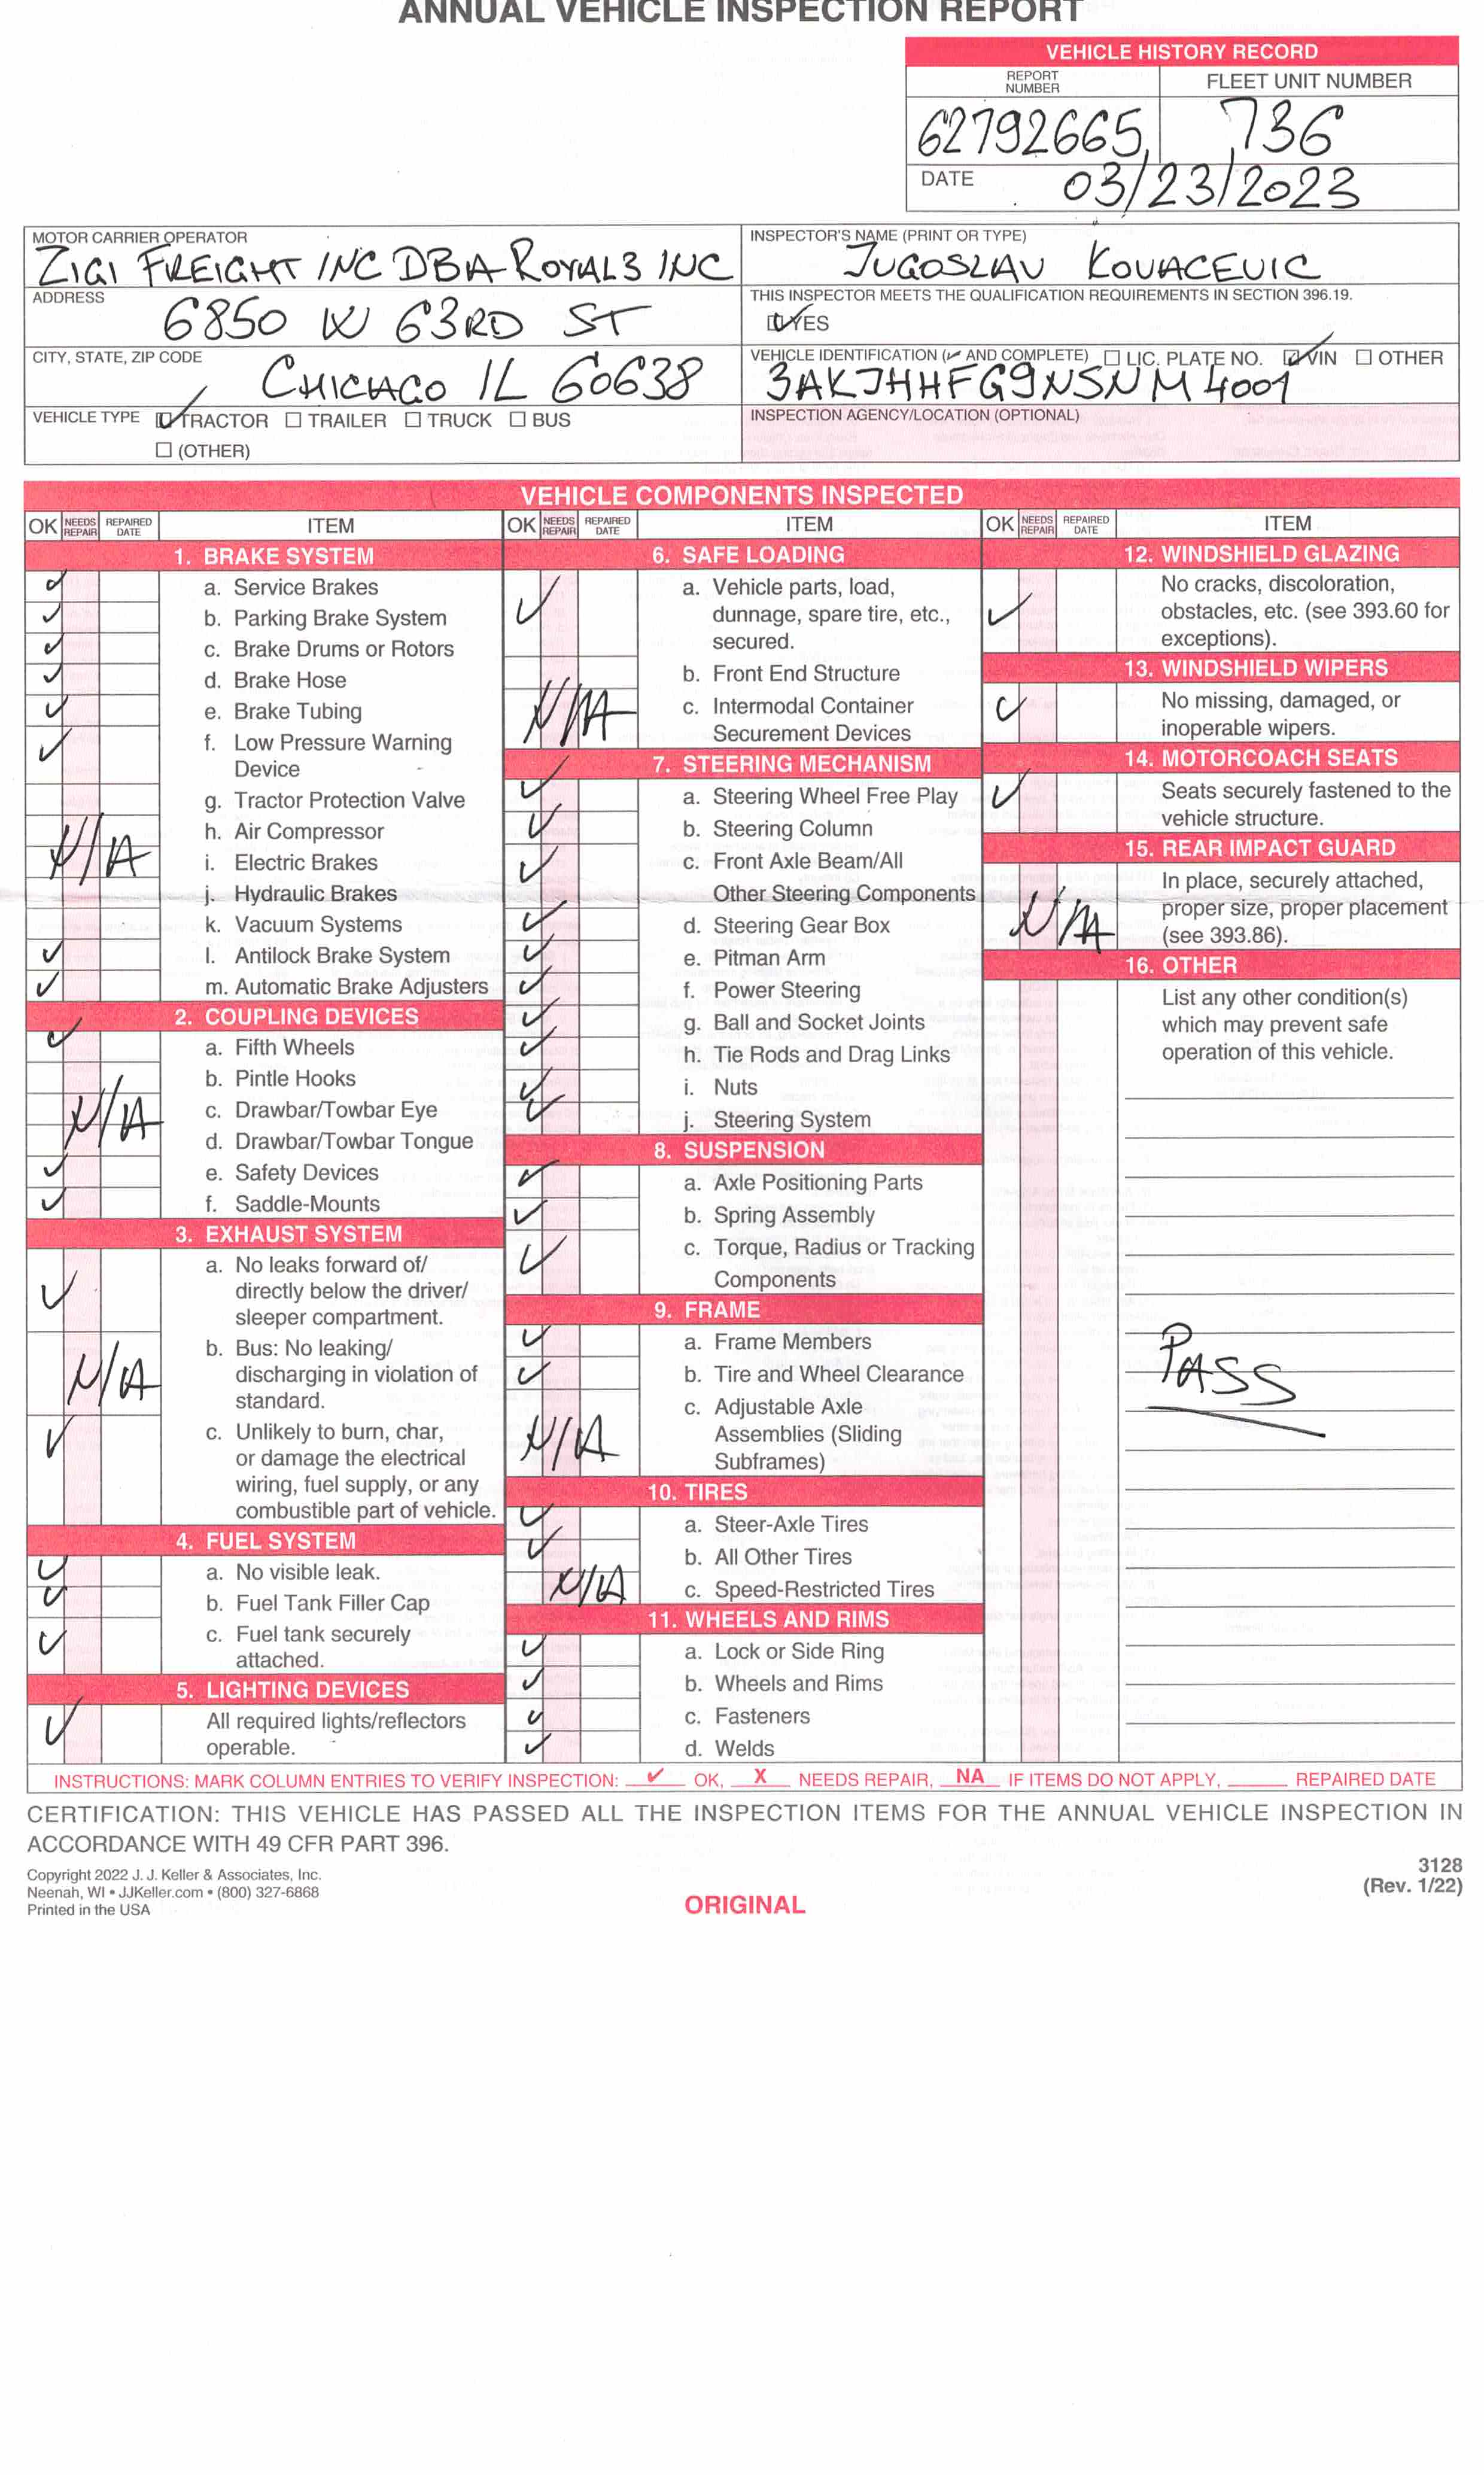 ANNUAL VEHICLE INSPECTION REPORT
VEHICLE HISTORY RECORD
REPORT NUMBER
FLEET UNIT NUMBER
62792665
736
DATE 03/23/2023
MOTOR CARRIER OPERATOR
ZIGI FREIGHT INC DBA ROYAL3 INC
ADDRESS
6850 W 63RD ST
CITY, STATE, ZIP CODE
CHICAGO IL 60638
VEHICLE TYPE TRACTOR TRAILER TRUCK BUS
(OTHER)
INSPECTOR'S NAME (PRINT OR TYPE)
JUGOSLAV KOVACEVIC
THIS INSPECTOR MEETS THE QUALIFICATION REQUIREMENTS IN SECTION 396.19.
YES
VEHICLE IDENTIFICATION (✓ AND COMPLETE) LIC. PLATE NO. VIN OTHER
3AKJHHFG9NSNM4001
INSPECTION AGENCY/LOCATION (OPTIONAL)
VEHICLE COMPONENTS INSPECTED
OK NEEDS REPAIR REPAIRED DATE ITEM
1. BRAKE SYSTEM
a. Service Brakes
b. Parking Brake System
c. Brake Drums or Rotors
d. Brake Hose
e. Brake Tubing
f. Low Pressure Warning
Device
g. Tractor Protection Valve
h. Air Compressor
N/A
i. Electric Brakes
j. Hydraulic Brakes
k. Vacuum Systems
l. Antilock Brake System
m. Automatic Brake Adjusters
2. COUPLING DEVICES
a. Fifth Wheels
b. Pintle Hooks
N/A
c. Drawbar/Towbar Eye
d. Drawbar/Towbar Tongue
e. Safety Devices
f. Saddle-Mounts
3. EXHAUST SYSTEM
a. No leaks forward of/
directly below the driver/
sleeper compartment.
b. Bus: No leaking/
N/A
discharging in violation of
standard.
c. Unlikely to burn, char,
or damage the electrical
wiring, fuel supply, or any
combustible part of vehicle.
4. FUEL SYSTEM
a. No visible leak.
b. Fuel Tank Filler Cap
c. Fuel tank securely
attached.
5. LIGHTING DEVICES
All required lights/reflectors
operable.
OK NEEDS REPAIR REPAIRED DATE ITEM
6. SAFE LOADING
a. Vehicle parts, load,
dunnage, spare tire, etc.,
secured.
b. Front End Structure
N/A
c. Intermodal Container
Securement Devices
7. STEERING MECHANISM
a. Steering Wheel Free Play
b. Steering Column
c. Front Axle Beam/All
Other Steering Components
d. Steering Gear Box
e. Pitman Arm
f. Power Steering
g. Ball and Socket Joints
h. Tie Rods and Drag Links
i. Nuts
j. Steering System
8. SUSPENSION
a. Axle Positioning Parts
b. Spring Assembly
c. Torque, Radius or Tracking
Components
9. FRAME
a. Frame Members
b. Tire and Wheel Clearance
c. Adjustable Axle
N/A
Assemblies (Sliding
Subframes)
10. TIRES
a. Steer-Axle Tires
b. All Other Tires
N/A
c. Speed-Restricted Tires
11. WHEELS AND RIMS
a. Lock or Side Ring
b. Wheels and Rims
c. Fasteners
d. Welds
OK NEEDS REPAIR REPAIRED DATE ITEM
12. WINDSHIELD GLAZING
No cracks, discoloration,
obstacles, etc. (see 393.60 for
exceptions).
13. WINDSHIELD WIPERS
No missing, damaged, or
inoperable wipers.
14. MOTORCOACH SEATS
Seats securely fastened to the
vehicle structure.
15. REAR IMPACT GUARD
In place, securely attached,
N/A
proper size, proper placement
(see 393.86).
16. OTHER
List any other condition(s)
which may prevent safe
operation of this vehicle.
PASS
INSTRUCTIONS: MARK COLUMN ENTRIES TO VERIFY INSPECTION: ✓ OK, X NEEDS REPAIR, NA IF ITEMS DO NOT APPLY, ______ REPAIRED DATE
CERTIFICATION: THIS VEHICLE HAS PASSED ALL THE INSPECTION ITEMS FOR THE ANNUAL VEHICLE INSPECTION IN
ACCORDANCE WITH 49 CFR PART 396.
Copyright 2022 J. J. Keller & Associates, Inc.
Neenah, WI • JJKeller.com • (800) 327-6868
Printed in the USA
ORIGINAL
3128
(Rev. 1/22)